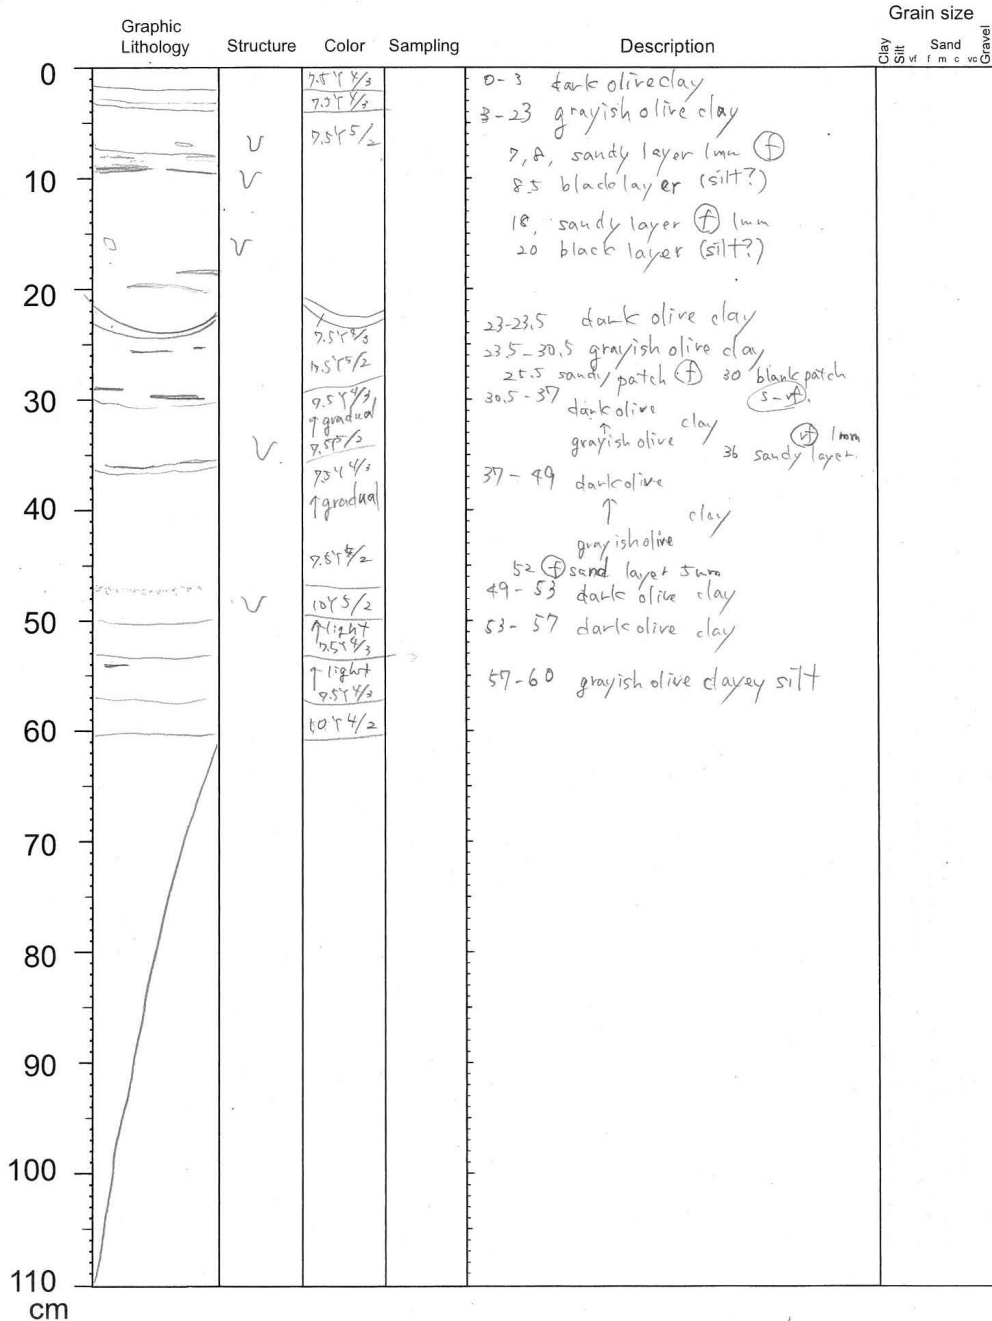 Graphic Lithology Structure Color Sampling Description Grain size
Clay Silt vf f m c vc Gravel
Sand
0
10
20
30
40
50
60
70
80
90
100
110
cm
7.5Y 4/3
7.5Y 4/3
7.5Y 5/2
7.5Y 4/3
7.5Y 5/2
7.5Y 4/3
↑ gradual
7.5Y 5/2
7.5Y 4/3
↑ gradual
7.5Y 5/2
10Y 5/2
↑ light
7.5Y 4/3
↑ light
7.5Y 4/3
10Y 4/2
0-3 dark olive clay
3-23 grayish olive clay
7, 8, sandy layer 1mm f
8.5 black layer (silt?)
18, sandy layer f 1mm
20 black layer (silt?)
23-23.5 dark olive clay
23.5-30.5 grayish olive clay
25.5 sandy patch f 30 blank patch
s-vf.
30.5-37 dark olive
↑ clay
grayish olive
vf 1mm
36 sandy layer.
37-49 dark olive
↑ clay
grayish olive
52 f sand layer 5mm
49-53 dark olive clay
53-57 dark olive clay
57-60 grayish olive clayey silt